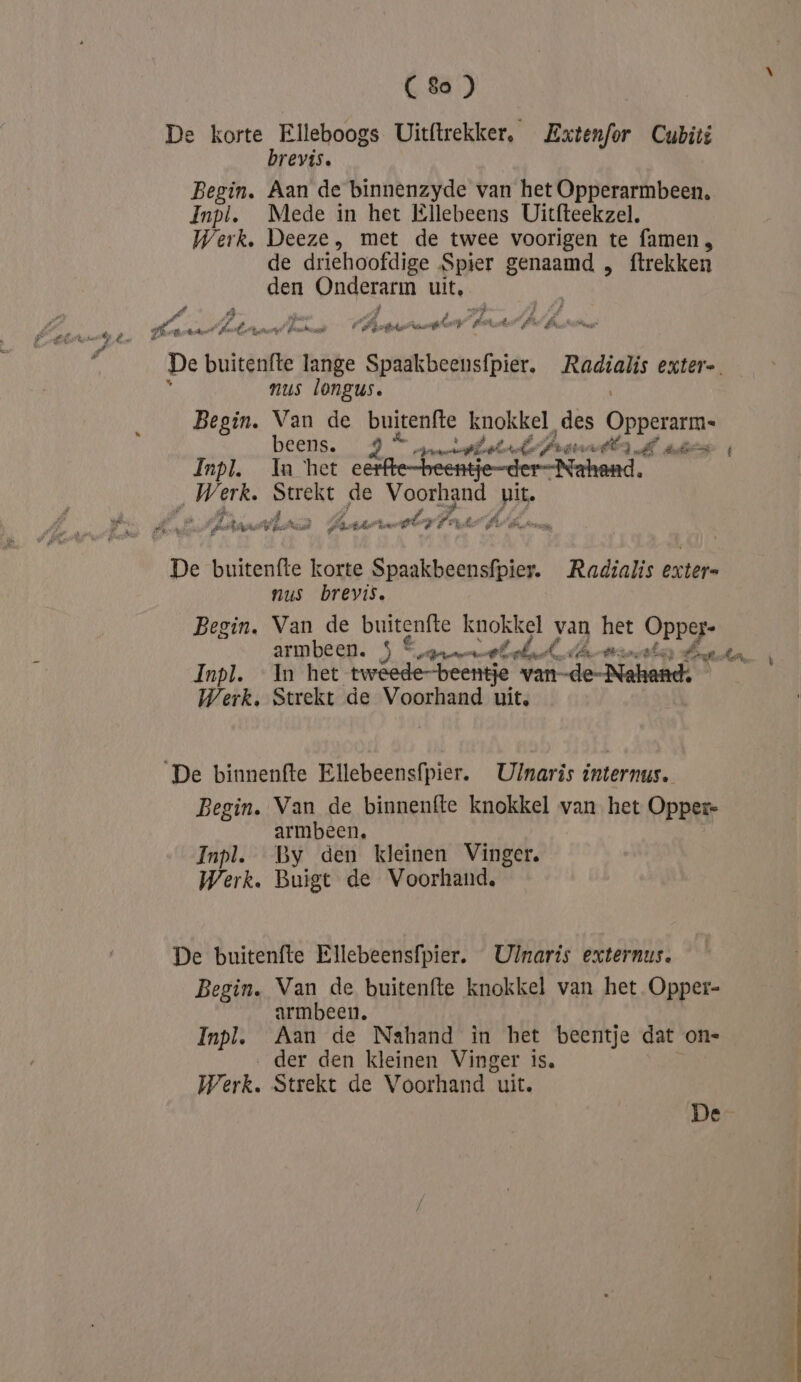 ( 80 )
De korte Elleboogs Uitſtrekker. Extenſor Cubiti
brevis.
Begin. Aan de binnenzyde van het Opperarmbeen.
Inpl. Mede in het Ellebeens Uitſteekzel.
Werk. Deeze, met de twee voorigen te ſamen,
de driehoofdige Spier genaamd, ſtrekken
den Onderarm uit.
De buitenſte lange Spaakbeensſpier. Radialis exter-
nus longus.
Begin. Van de buitenſte knokkel des Opperarm-
beens.
Inpl. In het eerſte beentje der Nahand.
Werk. Strekt de Voorhand uit.
De buitenſte korte Spaakbeensſpier. Radialis exter-
nus brevis.
Begin. Van de buitenſte knokkel van het Opper-
armbeen.
Inpl. In het tweede beentje van de Nahand.
Werk. Strekt de Voorhand uit.
De binnenſte Ellebeensſpier. Ulnaris internus.
Begin. Van de binnenſte knokkel van het Opper-
armbeen.
Inpl. By den kleinen Vinger.
Werk. Buigt de Voorhand.
De buitenſte Ellebeensſpier. Ulnaris externus.
Begin. Van de buitenſte knokkel van het Opper-
armbeen.
Inpl. Aan de Nahand in het beentje dat on-
der den kleinen Vinger is.
Werk. Strekt de Voorhand uit.
De